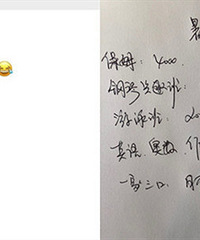 暑
保姆：4000
钢琴兴趣班：
游泳班：
英语、奥数、
一家三口